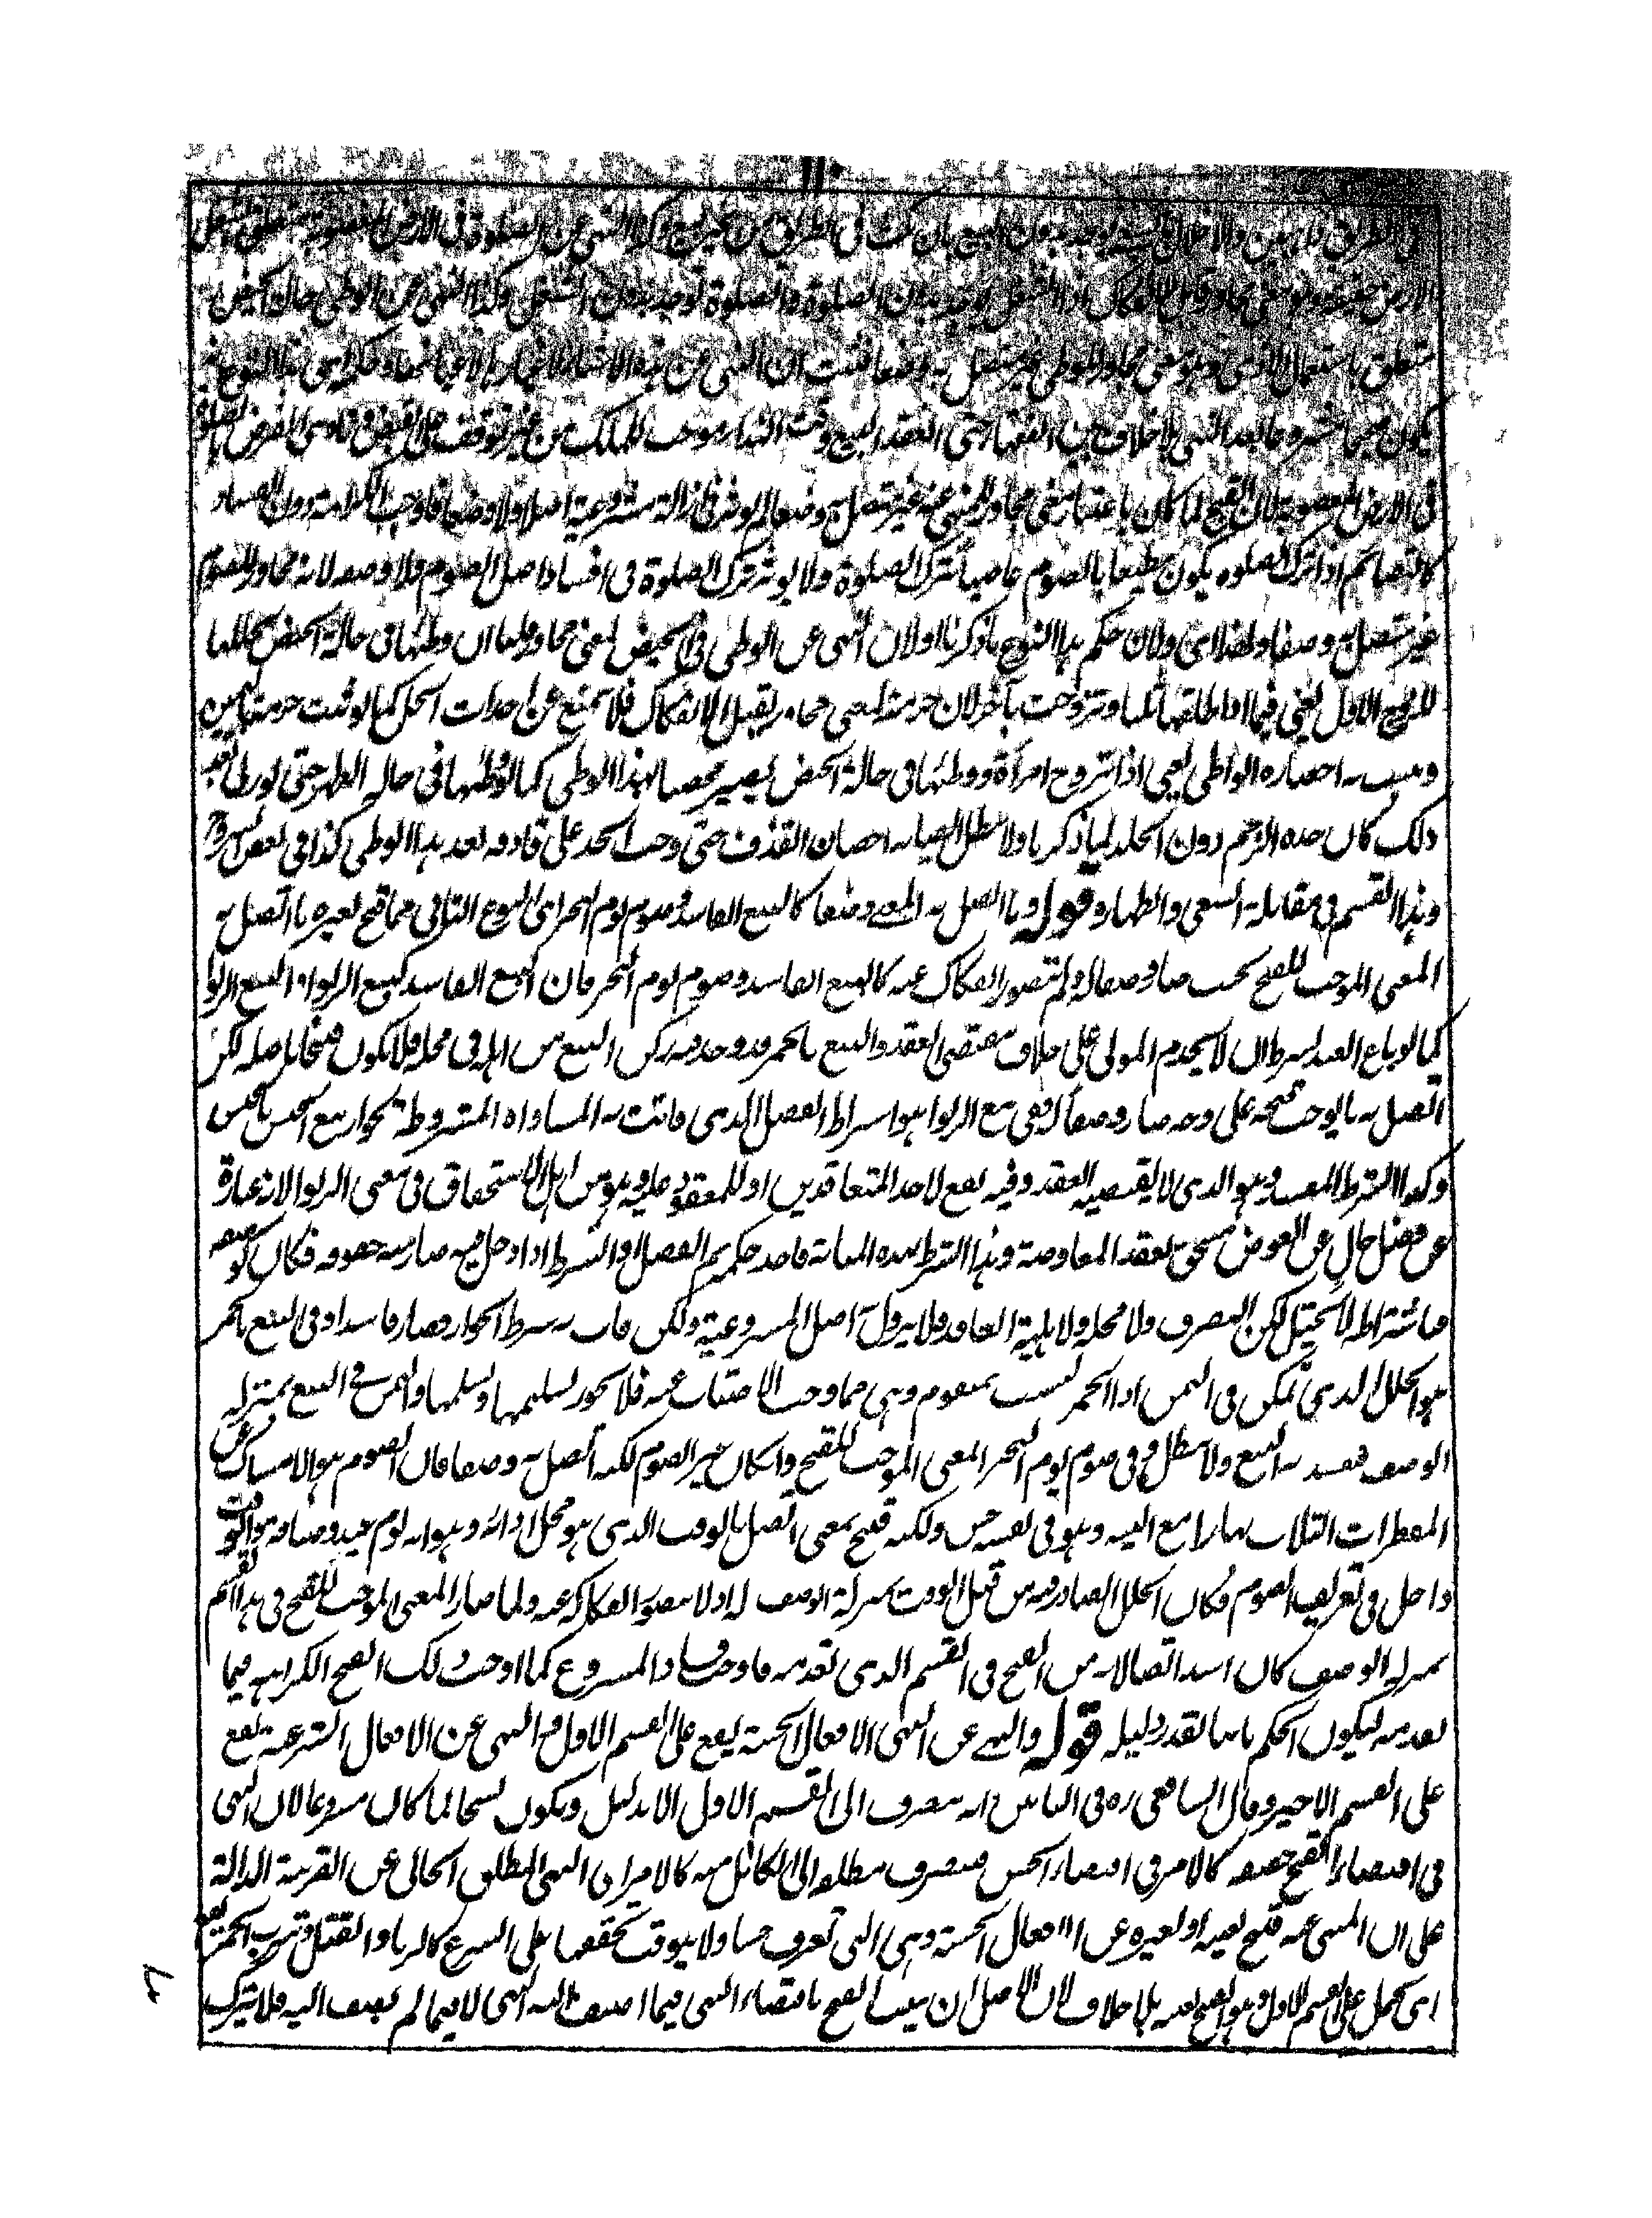 في الطريق والاخلال بالسعي يوجد بدون البيع بان مكث في الطريق من غير بيع وكذا النهي عن الصلوة في الارض المغصوبة متعلق بشغل
الارض حقيقة وهو معنى مجاور قابل للانفكاك اذ الشغل يوجد بدون الصلوة والصلوة توجد بدون الشغل وكذا النهي عن الوطي حالة الحيض
متعلق باستعمال الاذى وهو معنى مجاور للوطي غير متصل به وصفا فثبت ان النهي عن هذه الاشياء
يكون صحيحا مشروعا بعد النهي بلا خلاف بين الفقهاء حتى انعقد البيع وقت النداء موجبا للملك من غير توقف على القبض وتادى الفرض بالصلوة
في الارض المغصوبة لان القبح لما كان باعتبار معنى مجاور للمنهي عنه غير متصل به وصفا لم يوثر في ازالة مشروعية اصلا ولا وصفا فاوجب الكراهة دون الفساد
كالصائم اذا ترك الصلوة يكون مطيعا بالصوم عاصيا بترك الصلوة ولا يوثر ترك الصلوة في افساد اصل الصوم ولا وصفه لانه مجاور للصوم
غير متصل به وصفا ولهذا اى ولان حكم هذا النوع ما ذكرنا او لان النهي عن الوطي في الحيض لمعنى مجاور قلنا ان وطئها في حالة الحيض يحللها
للزوج الاول يعني فيما اذا طلقها ثلثا وتزوجت بآخر لان حرمته لمعنى مجاور يقبل الانفكاك فلا يمنع عن احداث الحل كما لو ثبت حرمتها بيمين
ويثبت به احصان الواطي يعني اذا تزوج امرأة ووطئها في حالة الحيض يصير محصنا بهذا الوطي كما لو وطئها في حالة الطهر حتى لو زنى بعد
ذلك كان حده الرجم دون الجلد لما ذكرنا ولا يبطل به احصان القذف حتى وجب الحد على قاذفه بعد هذا الوطي كذا في بعض الشروح
وهذا القسم في مقابلة السعي والطهارة قوله وما اتصل به المعنى وصفا كالبيع الفاسد وصوم يوم النحر اى النوع الثاني مما قبح لغيره ما اتصل به
المعنى الموجب للقبح بحيث صار وصفا له ولم يتصور انفكاك عنه كالبيع الفاسد وصوم يوم النحر فان البيع الفاسد كبيع الربوا والبيع الربوا
كما لو باع العبد بشرط ان لا يخدم المولى على خلاف مقتضى العقد والبيع بالخمر قد وجد فيه ركن البيع من اهله في محله فلا يكون قبيحا باصله لكن
اتصل به ما يوجب قبحه على وجه صار وصفا له ففي بيع الربوا هو اشتراط الفضل الذي فاتت به المساواة المشروطة لجواز بيع الجنس بالجنس
وكذا الشرط المفسد وهو الذي لا يقتضيه العقد وفيه نفع لاحد المتعاقدين او للمعقود عليه وهو من اهل الاستحقاق في معنى الربوا لانه عبارة
عن فضل خال عن العوض مستحق بعقد المعاوضة وهذا الشرط بهذه المثابة فاخذ حكمه ثم الفضل او الشرط اذا دخل فيه صار من حقوقه فكان كوصفه
فباشتراطه لا يختل ركن التصرف ولا محله ولا اهلية العاقد فلا يزول اصل المشروعية ولكن فات به شرط الجواز فصار فاسدا وفي البيع بالخمر
هو الخلل الذي تمكن في الثمن اذ الخمر ليست بمتقوم وهى مما وجب الاجتناب عنه فلا يجوز تسليمها وتسلمها والثمن في البيع بمنزلة
الوصف فيفسد به البيع ولا يبطل وفي صوم يوم النحر المعنى الموجب للقبح وان كان غير الصوم لكنه اتصل به وصفا فان الصوم هو الامساك عن
المفطرات الثلاث نهارا مع النية وهو في نفسه حسن ولكنه قبيح بمعنى اتصل بالوقت الذي هو محل ادائه وهو انه يوم عيد وضيافة والوقت
داخل في تعريف الصوم فكان الخلل الصادر فيه من قبل الوقت بمنزلة الوصف له اذ لا يتصور انفكاكه عنه ولما صار المعنى الموجب للقبح في هذا القسم
بمنزلة الوصف كان اشد اتصالا به من القبح في القسم الذي تقدمه فاوجب فساد المشروع كما اوجب ذلك القبح الكراهة فيما
تقدمه ليكون الحكم ثابتا بقدر دليله قوله والنهي عن الافعال الحسية يقع على القسم الاول والنهي عن الافعال الشرعية يقع
على القسم الاخير وقال الشافعي ره في البابين انه ينصرف الى القسم الاول الا بدليل ويكون نسخا لما كان مشروعا لان النهي
في اقتضاء القبح حقيقة كالامر في اقتضاء الحسن فينصرف مطلقه الى الكامل منه كالامر ان النهي المطلق الخالي عن القرينة الدالة
على ان المنهي عنه قبيح لعينه او لغيره عن الافعال الحسية وهى التي تعرف حسا ولا يتوقف تحققها على الشرع كالزنا والقتل وشرب الخمر يقع
اى يحمل على القسم الاول وهو القبيح لعينه بلا خلاف لان الاصل ان يثبت القبح باقتضاء النهي فيما اضيف اليه النهي لا فيما لم يضف اليه فلا يترك